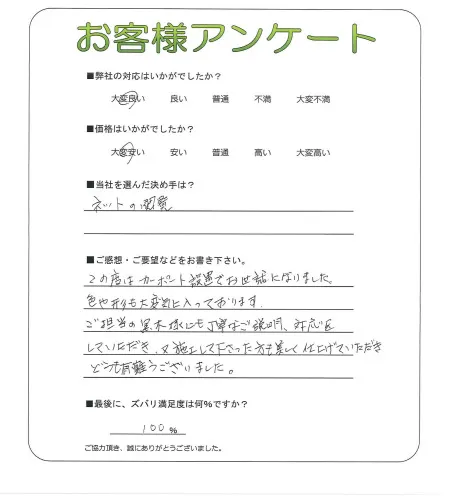 お客様アンケート
■弊社の対応はいかがでしたか？
大変良い 良い 普通 不満 大変不満
■価格はいかがでしたか？
大変安い 安い 普通 高い 大変高い
■当社を選んだ決め手は？
ネットの閲覧
■ご感想・ご要望などをお書き下さい。
この度はカーポート設置でお世話になりました。
色や形も大変気に入っております。
ご担当の黒木様にも丁寧なご説明、対応を
していただき、又施工して下さった方も美しく仕上げていただき
どうも有難うございました。
■最後に、ズバリ満足度は何%ですか？
100%
ご協力頂き、誠にありがとうございました。